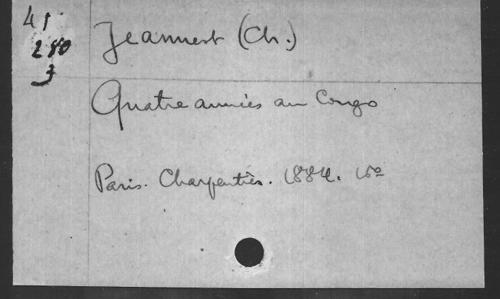 41
280
3
Jeannest (Ch.)
Quatre années au Congo
Paris. Charpentier. 1884. 16º